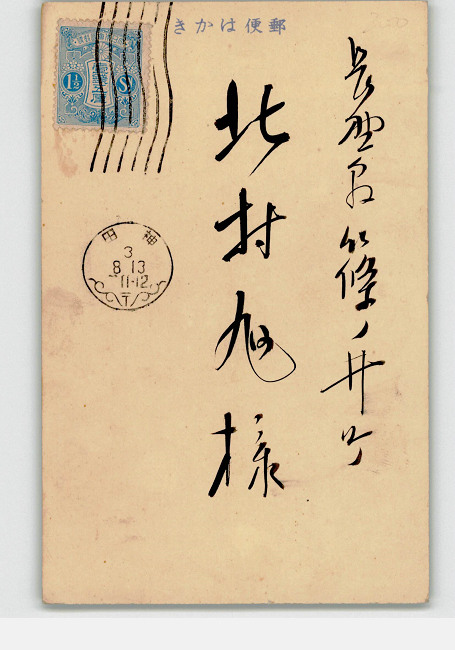 郵便はかき
長野県篠ノ井町
北村旭様
1½ Sn
神田
3
8 13
11-12
T